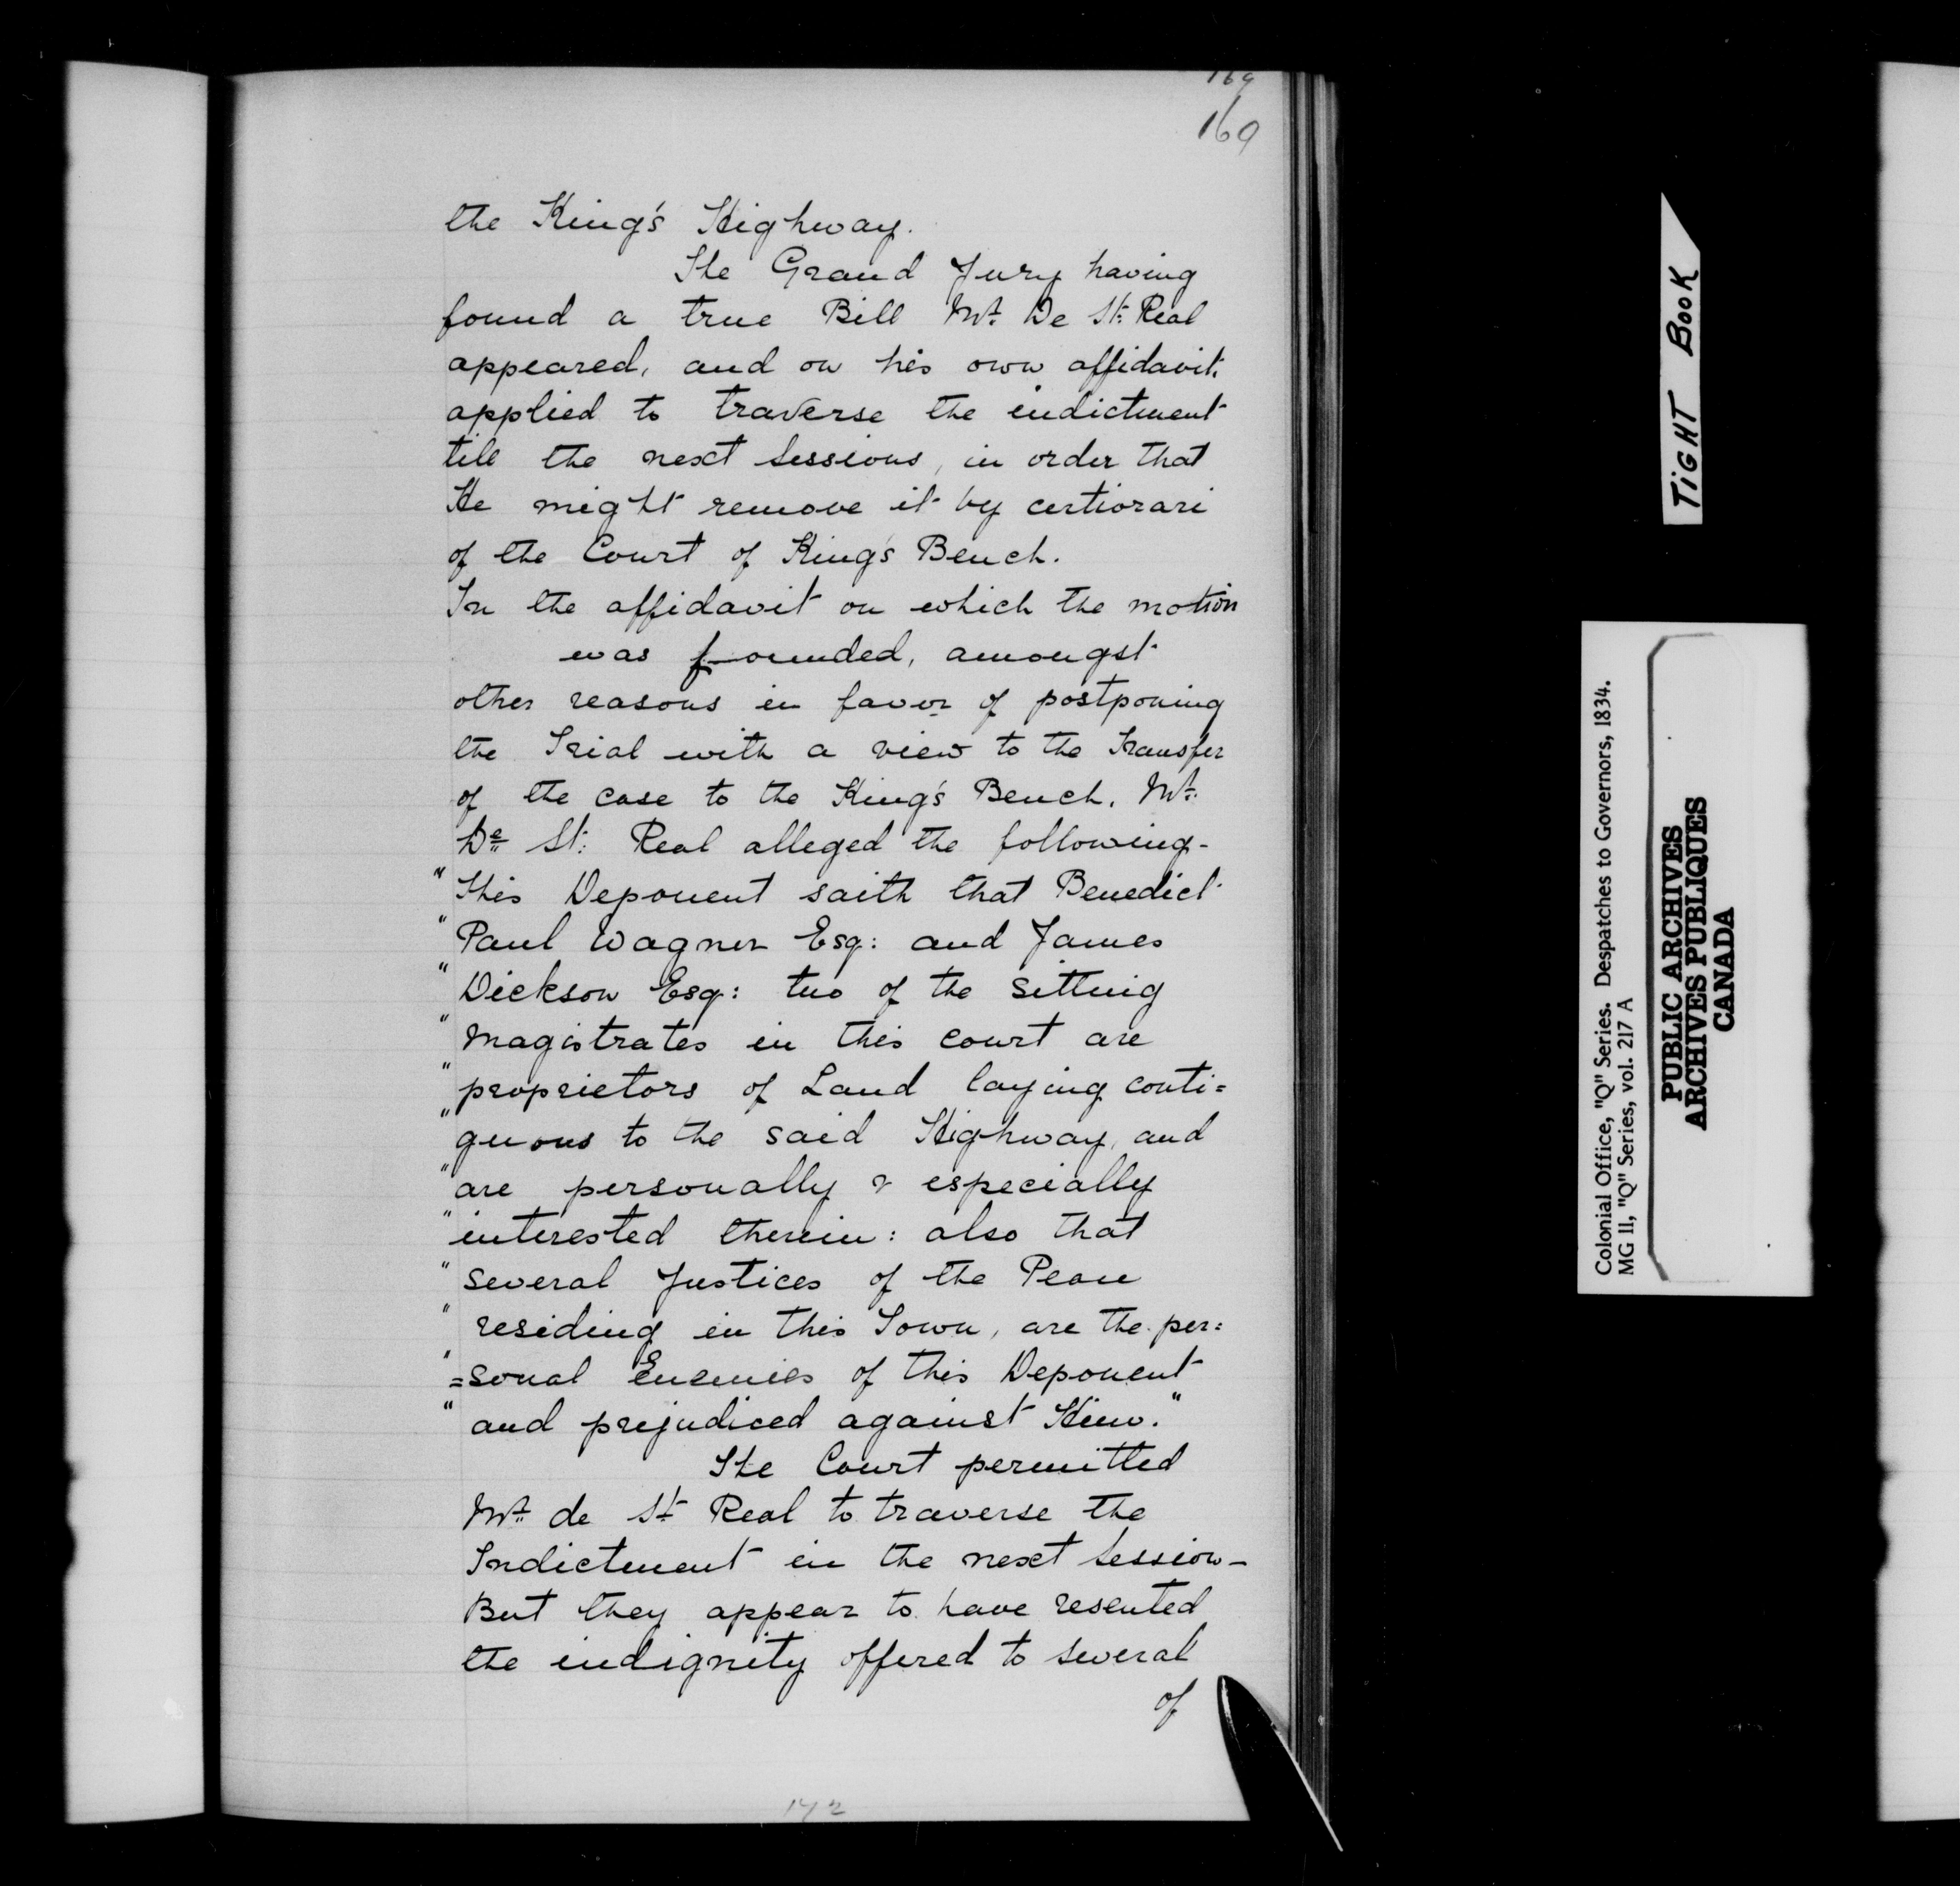 169
169
the King's Highway.
The Grand Jury having
found a true Bill Mr. De St. Real
appeared, and on his own affidavit
applied to traverse the indictment
till the next Sessions, in order that
He might remove it by certiorari
of the Court of King's Bench.
In the affidavit on which the motion
was founded, amongst
other reasons in favor of postponing
the Trial with a view to the Transfer
of the case to the King's Bench, Mr.
De St. Real alleged the following-
"This Deponent saith that Benedict
"Paul Wagner Esq: and James
"Dickson Esq: two of the sitting
"Magistrates in this court are
"proprietors of Land laying conti=
"guous to the said Highway, and
"are personally & especially
"interested therein: also that
"several Justices of the Peace
"residing in this Town, are the per=
"=sonal Enemies of this Deponent
"and prejudiced against Him."
The Court permitted
Mr. de St. Real to traverse the
Indictment in the next Session-
But they appear to have resented
the indignity offered to several
of
172
TIGHT BOOK
Colonial Office, "Q" Series. Despatches to Governors, 1834.
MG 11, "Q" Series, vol. 217 A
PUBLIC ARCHIVES
ARCHIVES PUBLIQUES
CANADA